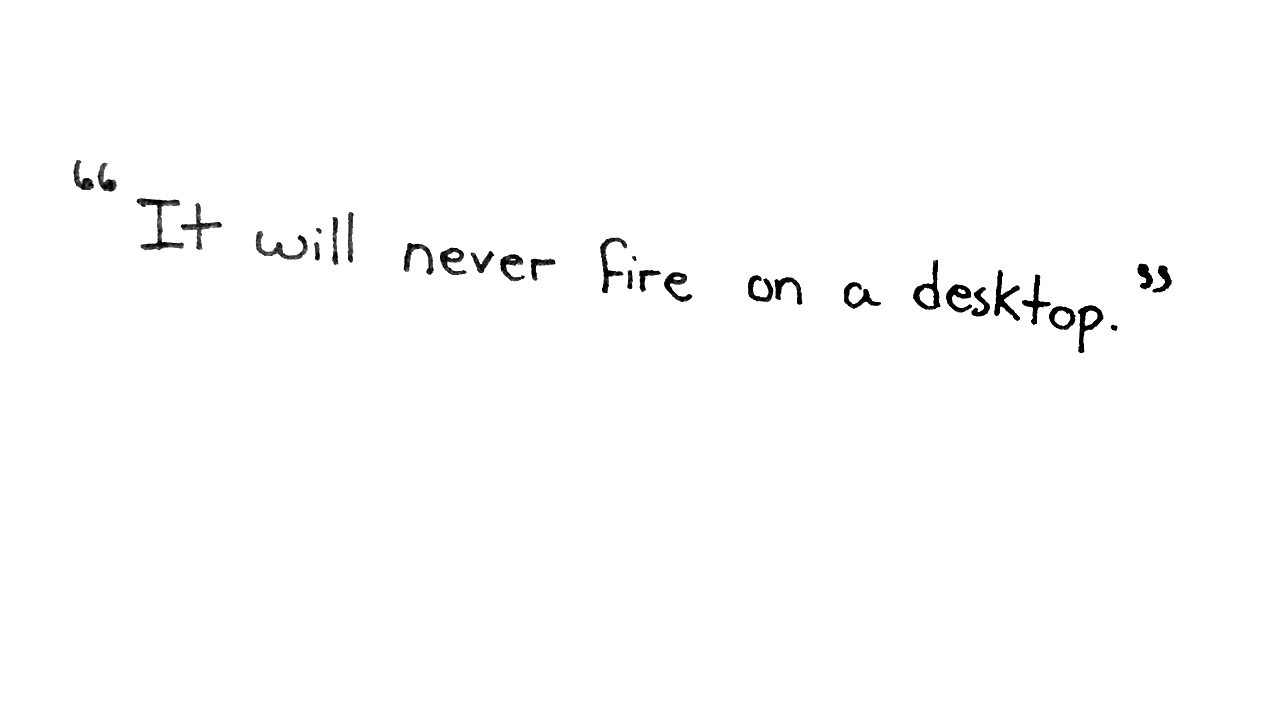 “It will never fire on a desktop.”